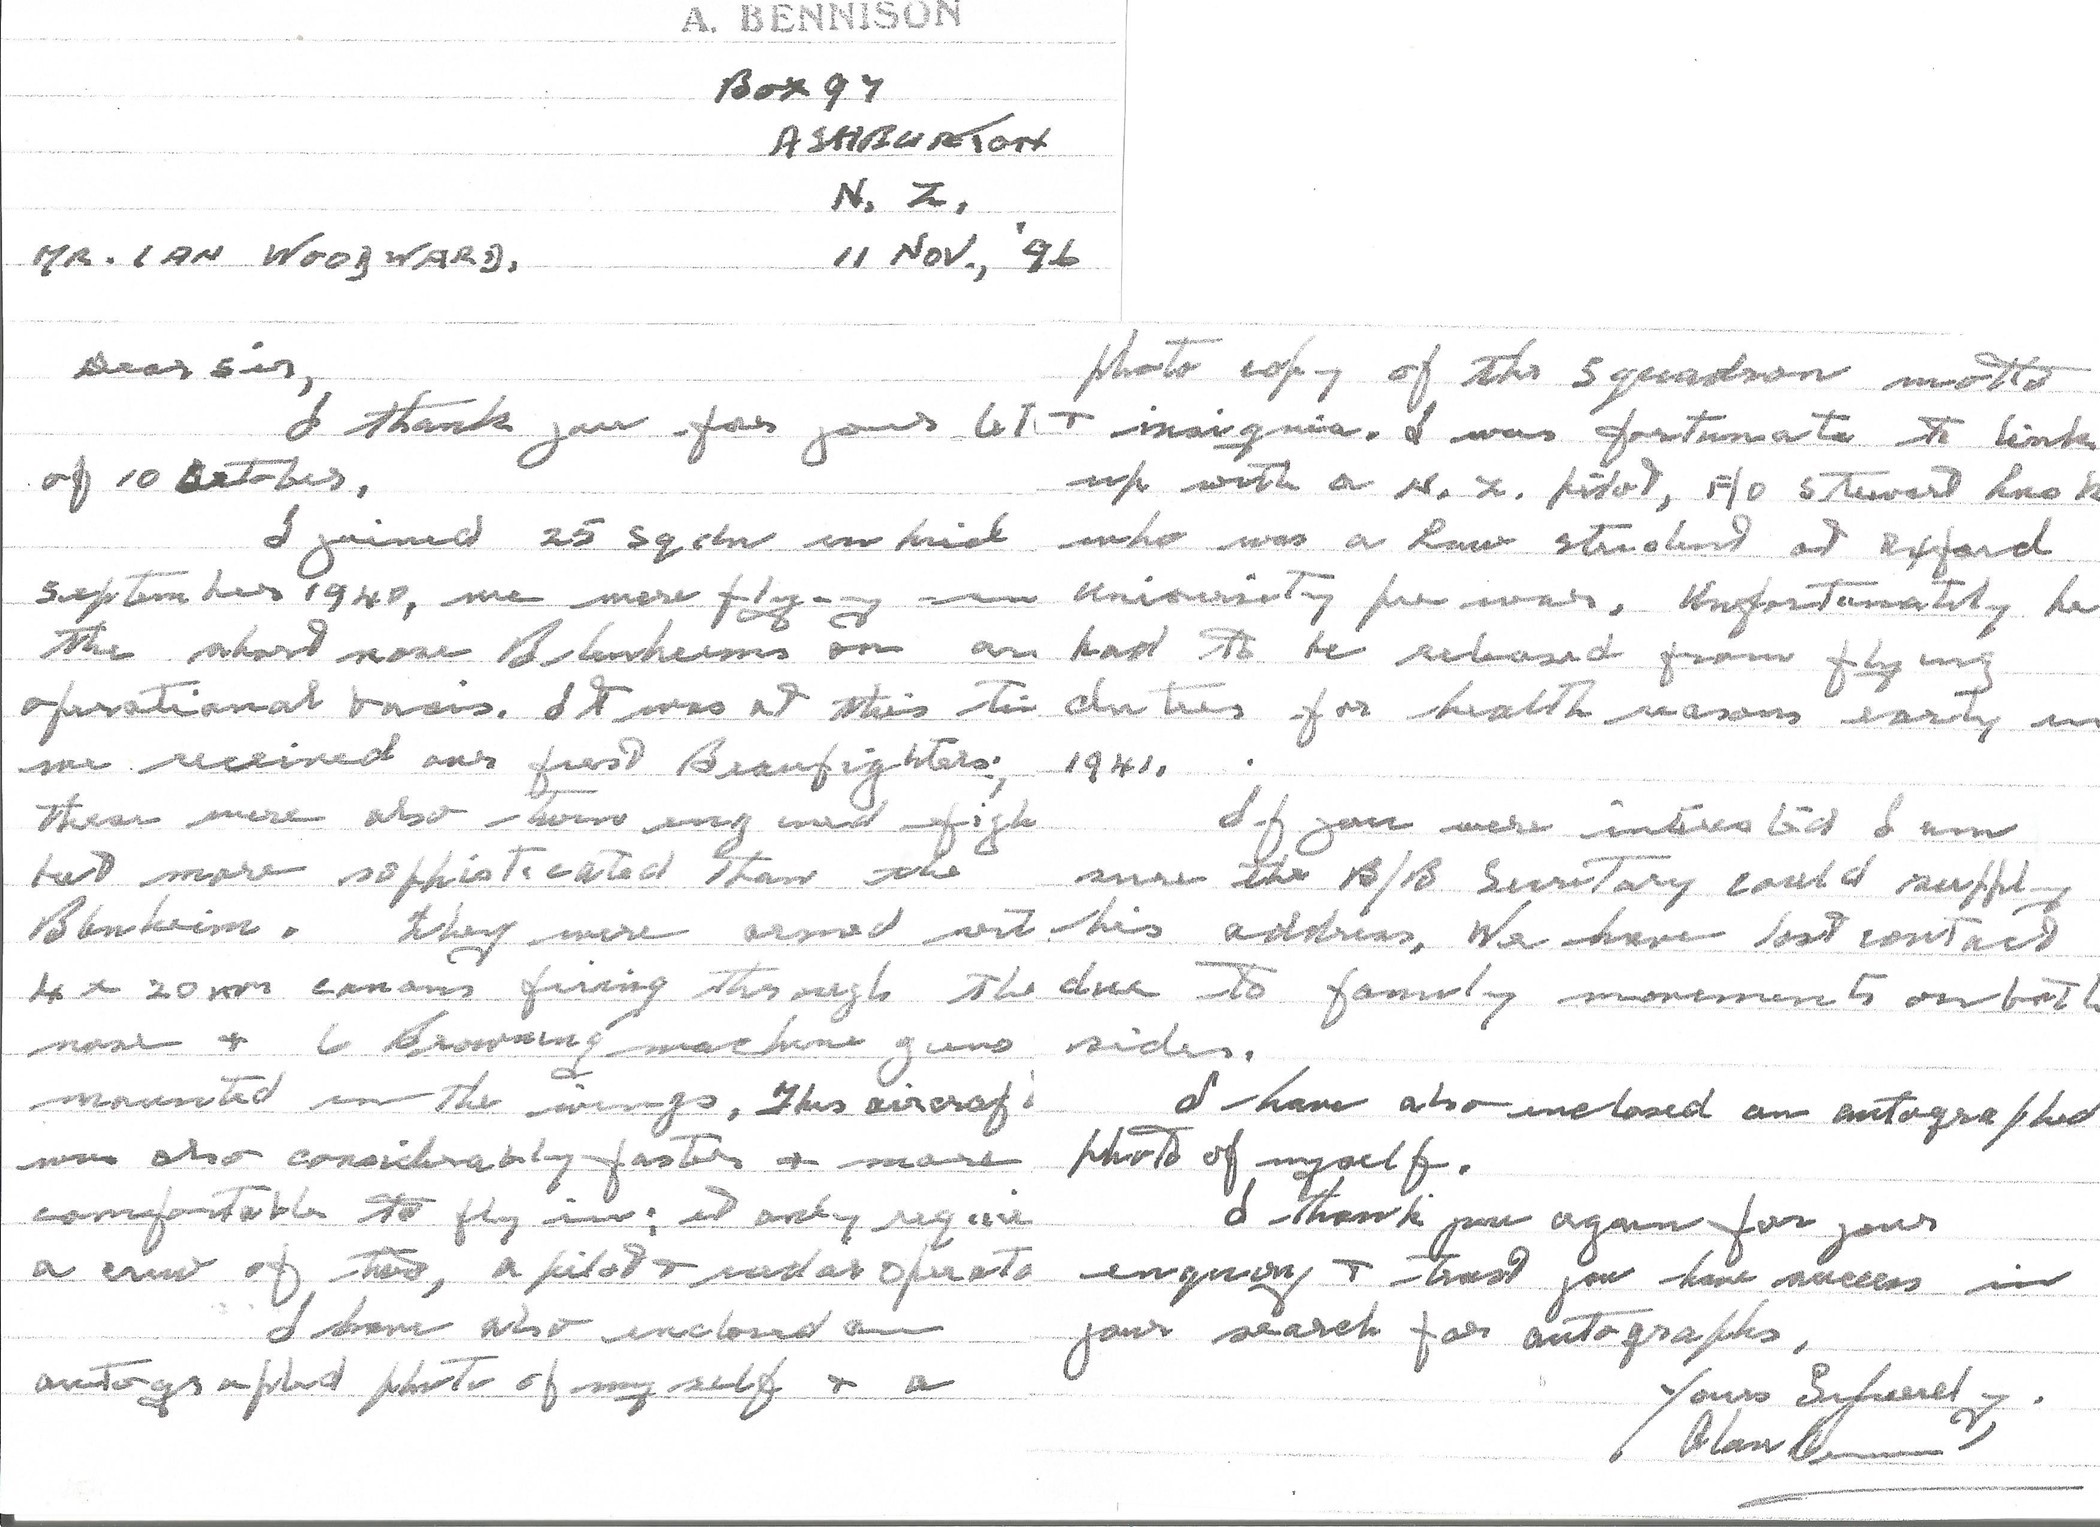 A. BENNISON
Box 97
ASHBURTON
N. Z.
MR. IAN WOODWARD. 11 NOV., '96
Dear Sir,
I thank you for your let
of 10 October.
I joined 25 Sqdn in mid
September 1940, we were flying in
the short nose Blenheims on an
operational basis. It was at this ti
we received our first Beaufighters;
these were also twin engined figh
but more sophisticated than the
Blenheim. They were armed wit
4 x 20 mm canons firing through the
nose + 6 Browning machine guns
mounted in the wings. This aircraft
was also considerably faster + more
comfortable to fly in; it only requie
a crew of two, a pilot + radar operato
I have also enclosed an
autographed photo of myself + a
photo copy of the Squadron motto
+ insignia. I was fortunate to link
up with a N. Z. pilot, F/O Steward
who was a Law student at Oxford
University pre war. Unfortunately he
had to be released from flying
duties for health reasons early in
1941.
If you were interested I am
sure the B/B Secretary could supply
his address. We have lost contact
due to family movements on both
sides.
I have also enclosed an autographed
photo of myself.
I thank you again for your
enquiry + trust you have success in
your search for autographs.
Yours Sincerely.
Alan Bennison